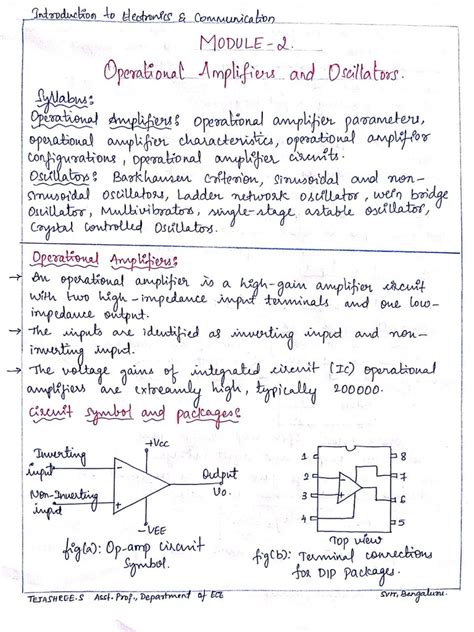 Introduction to Electronics & Communication
MODULE-2.
Operational Amplifiers and Oscillators.
Syllabus:
Operational Amplifiers: Operational amplifier parameters,
operational amplifier characteristics, operational amplifier
configurations, operational amplifier circuits.
Oscillators: Barkhausen Criterion, sinusoidal and non-
sinusoidal oscillators, Ladder network oscillator, wein bridge
oscillator, Multivibrators, single-stage astable oscillator,
Crystal controlled Oscillators.
Operational Amplifiers:
→ An operational amplifier is a high-gain amplifier circuit
with two high-impedance input terminals and one low-
impedance output.
→ The inputs are identified as inverting input and non-
inverting input.
→ The voltage gains of integrated circuit (IC) operational
amplifiers are extreamly high, typically 200000.
Circuit symbol and packages:
+Vcc
Inverting
input
Non-Inverting
input
Output
Vo.
-VEE
fig(a): Op-amp circuit
Symbol.
1 8
2 7
3 6
4 5
Top view
fig(b): Terminal connections
for DIP Packages.
TEJASHREE.S Asst. Prof., Department of ECE
SVIT, Bengaluru.